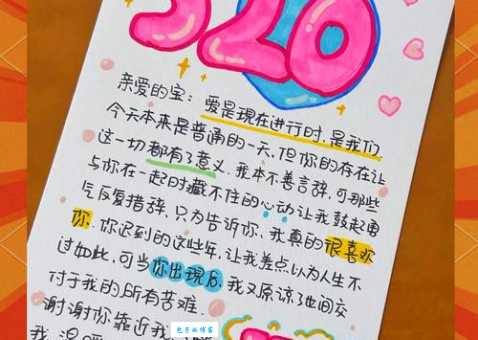 520
亲爱的宝：爱是現在进行时，是我们
今天本来是普通的一天，但你的存在让
这一切都有了意义．我本不善言辞，可那些
与你在一起时藏不住的心动让我鼓起勇
气反复措辞、只为告诉你、我真的很喜欢
你．你迟到的这些年，让我差点以为人生不
过如此，可当你出現后，我又原谅了世间交
付于我的所有苦难．
谢谢你靠近我
包子ww博客